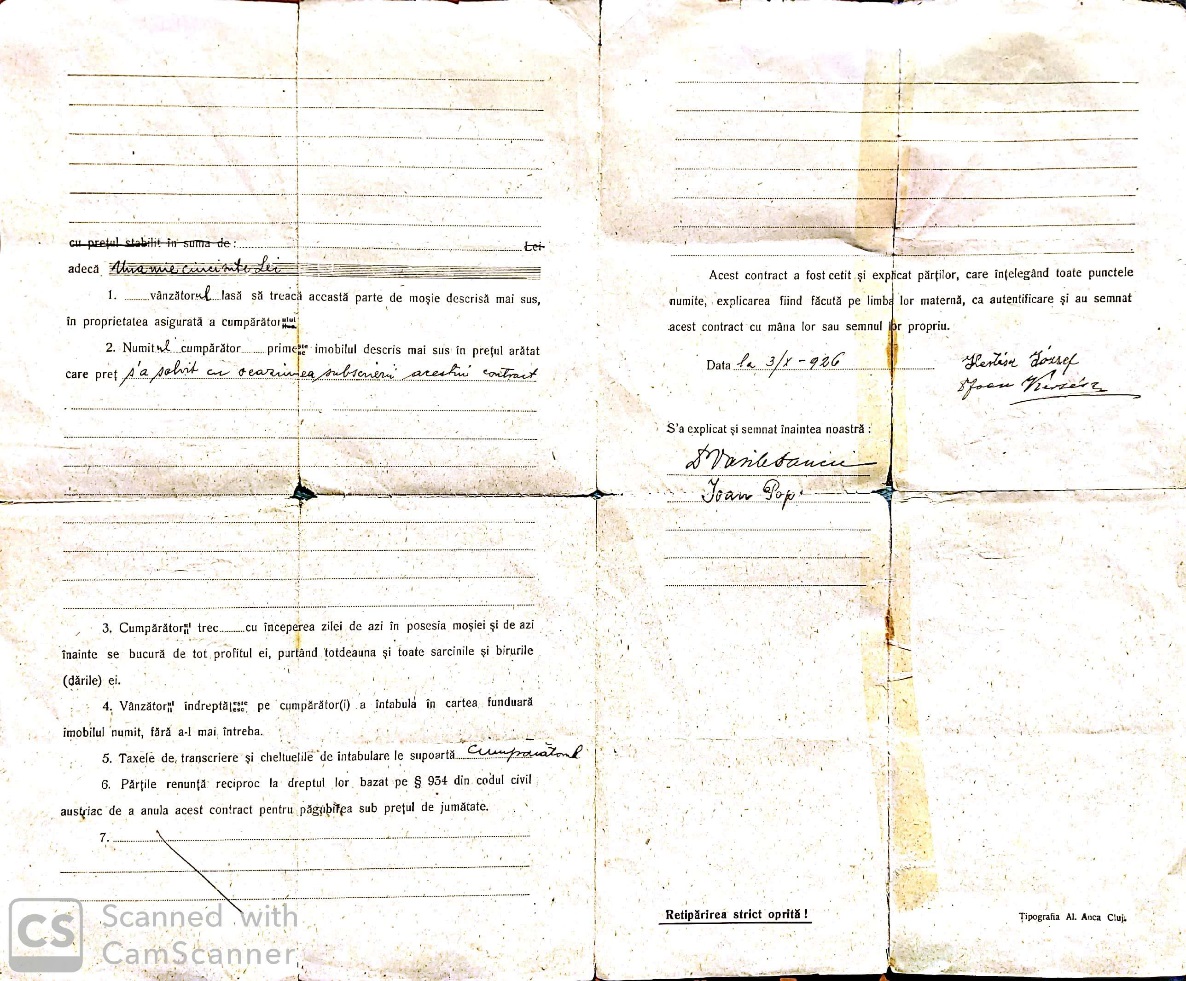 cu prețul stabilit în suma de : Lei
adecă Una mie cinci sute Lei
1. vânzătorul lasă să treacă această parte de moșie descrisă mai sus,
în proprietatea asigurată a cumpărător ului
2. Numitul cumpărător primește imobilul descris mai sus în prețul arătat
care preț s'a solvit cu ocaziunea subscrierii acestui contract
3. Cumpărător trec cu începerea zilei de azi în posesia moșiei și de azi
înainte se bucură de tot profitul ei, purtând totdeauna și toate sarcinile și birurile
(dările) ei.
4. Vânzător îndreptă pe cumpărător(i) a întabula în cartea funduară
imobilul numit, fără a-l mai întreba.
5. Taxele de transcriere și cheltuelile de intabulare le supoartă Cumpărătorul
6. Părțile renunță reciproc la dreptul lor bazat pe § 934 din codul civil
austriac de a anula acest contract pentru păgubirea sub prețul de jumătate.
7.
Acest contract a fost cetit și explicat părților, care înțelegând toate punctele
numite, explicarea fiind făcută pe limba lor maternă, ca autentificare și au semnat
acest contract cu mâna lor sau semnul lor propriu.
Data la 3/X-926
József
Ioan
S'a explicat și semnat înaintea noastră :
Ioan Pop
Retipărirea strict oprită !
Tipografia Al. Anca Cluj.
CS
Scanned with
CamScanner